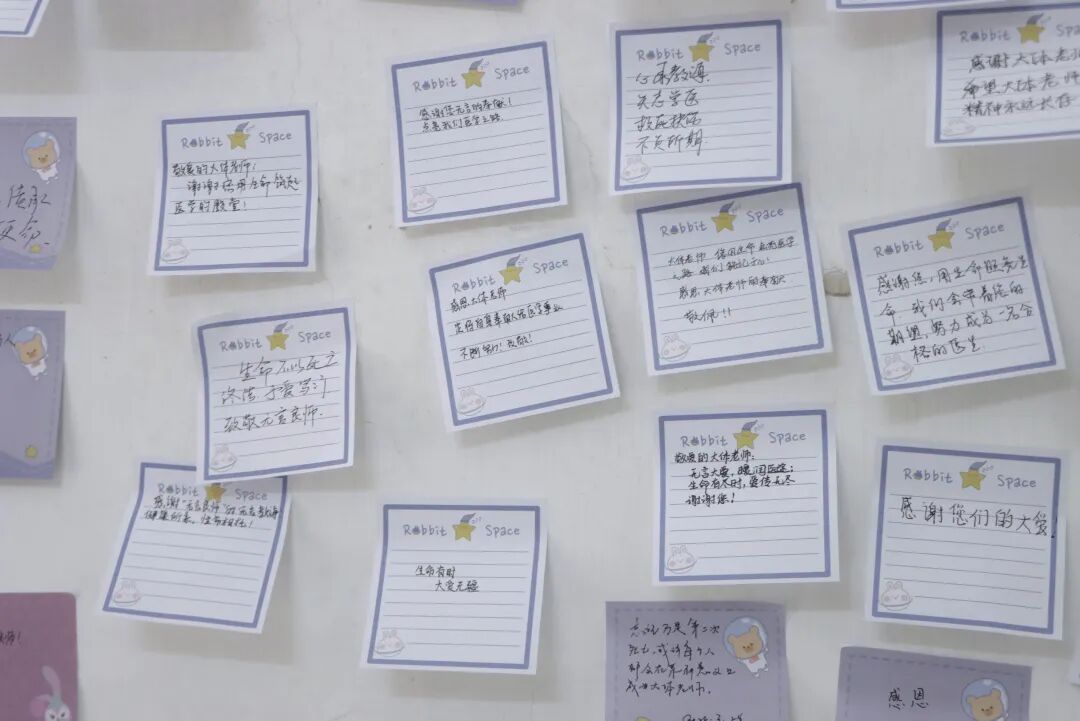 Rabbit Space
感谢您无言的奉献!
点亮我们医学之路
Rabbit Space
矢志学医
不负所期
Rabbit Space
感谢大体老师
希望大体老师
精神永远长存
Rabbit Space
敬爱的大体老师:
谢谢您用生命筑起
医学的殿堂!
传承
Rabbit Space
感恩大体老师
不断努力!致敬!
Rabbit Space
大体老师
感恩大体老师的奉献
敬佩!!
Rabbit Space
感谢您,用生命照亮生
命,我们会带着您的
期望,努力成为一名合
格的医生.
Rabbit Space
生命不以死亡
终结,于爱写门
致敬无言良师.
Rabbit Space
敬爱的大体老师:
无言大爱,暖润医途;
生命有尽时,爱传无尽
谢谢您!
Rabbit Space
感谢"无言良师"的无言教诲
健康所系,性命相托!
Rabbit Space
生命有时
大爱无疆
Rabbit Space
感谢您们的大爱!
忘记乃是第二次
死亡,或许每个人
都会在某种意义上
成为大体老师.
感恩